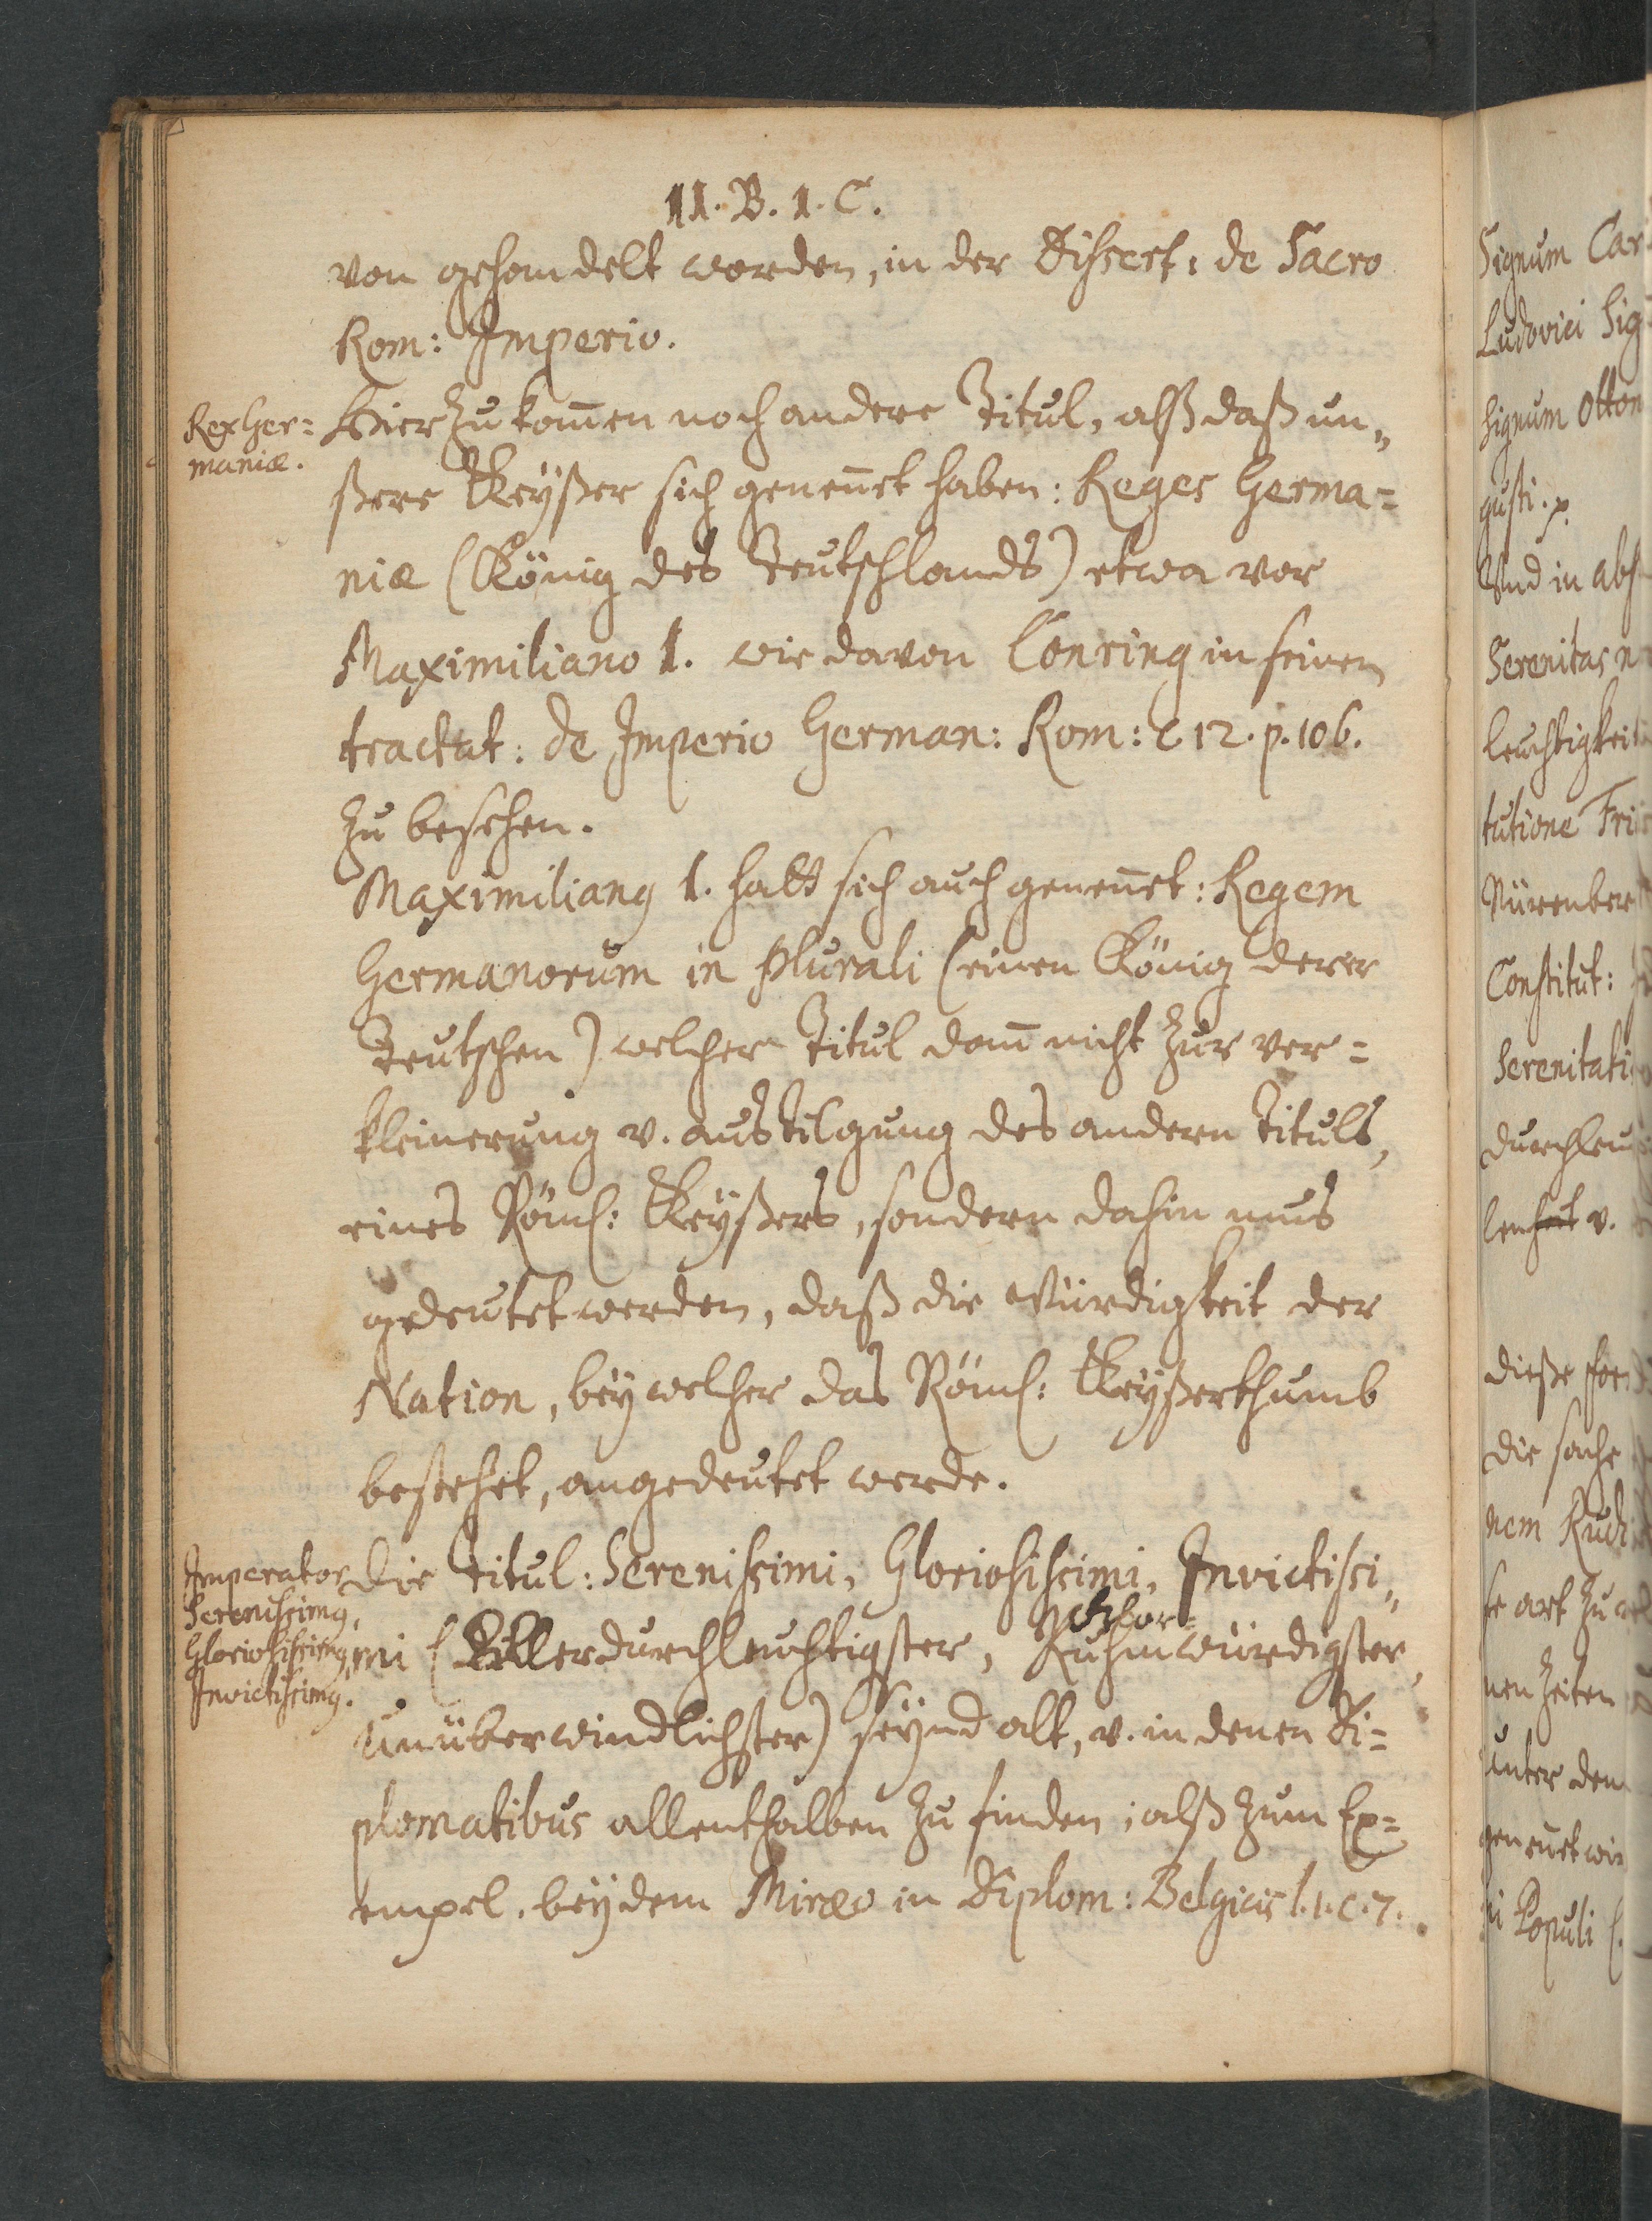 II. B. 1. C.
von gehandelt worden, in der Dissert: de Sacro
Rom: Imperio.
Rex Ger=
maniæ.
Hierzu kom̄en noch andere Titul, alß daß un„
ßere Keyßer sich genen̄et haben: Reges Germa=
niæ (König des Teutschlands) etwa vor
Maximiliano 1. wie davon Conring in seinem
tractat: de Imperio German: Rom: c 12. p. 106.
zu besehen.
Maximilianus 1. hatt sich auch genen̄et: Regem
Germanorum in plurali (einen König derer
Teutschen) welcher Titul dan̄ nicht zur ver=
kleinerung v. austilgung des andern Tituls,
eines Röml: Keyßers, sondern dahin mus
gedeutet werden, daß die Würdigkeit der
Nation, bey welcher das Röml: Keyßerthumb
bestehet, angedeutet werde.
Imperator
Serenissimus,
Gloriosissimus,
Invictissimus.
Die Titul: Serenissimi, Gloriosissimi, Invictissi„
mi (Allerdurchleuchtigster, Ruhmwürdigster,
Unüberwindlichster) seynd alt, v. in denen Di=
plomatibus allenthalben zu finden; alß zum Ex=
empel. bey dem Miræo in Diplom: Belgicis l. 1. c. 7.
Signum Car
Ludovici Sig
Signum Otton
gusti. p.
Und in abs
Serenitas n
leuchtigkeit
tutione Fri
Nürenber
Constitut:
Serenitati
durchleu
v.
dieße
die sache
nem
se art zu
nen Zeiten
unter den
genen̄et wir
ni Populi